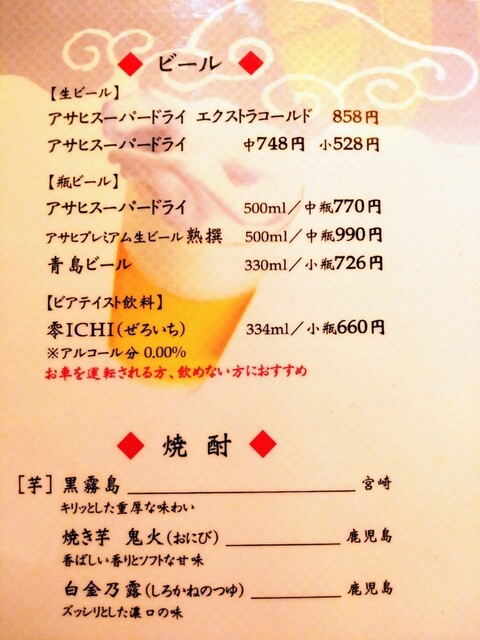 ◆ ビール ◆
【生ビール】
アサヒスーパードライ エクストラコールド 858円
アサヒスーパードライ 中748円 小528円
【瓶ビール】
アサヒスーパードライ 500ml／中瓶770円
アサヒプレミアム生ビール熟撰 500ml／中瓶990円
青島ビール 330ml／小瓶726円
【ビアテイスト飲料】
零ICHI(ぜろいち) 334ml／小瓶660円
※アルコール分 0.00%
お車を運転される方、飲めない方におすすめ
◆ 焼酎 ◆
[芋] 黒霧島 宮崎
キリッとした重厚な味わい
焼き芋 鬼火(おにび) 鹿児島
香ばしい香りとソフトな甘味
白金乃露(しろかねのつゆ) 鹿児島
ズッシリとした濃口の味